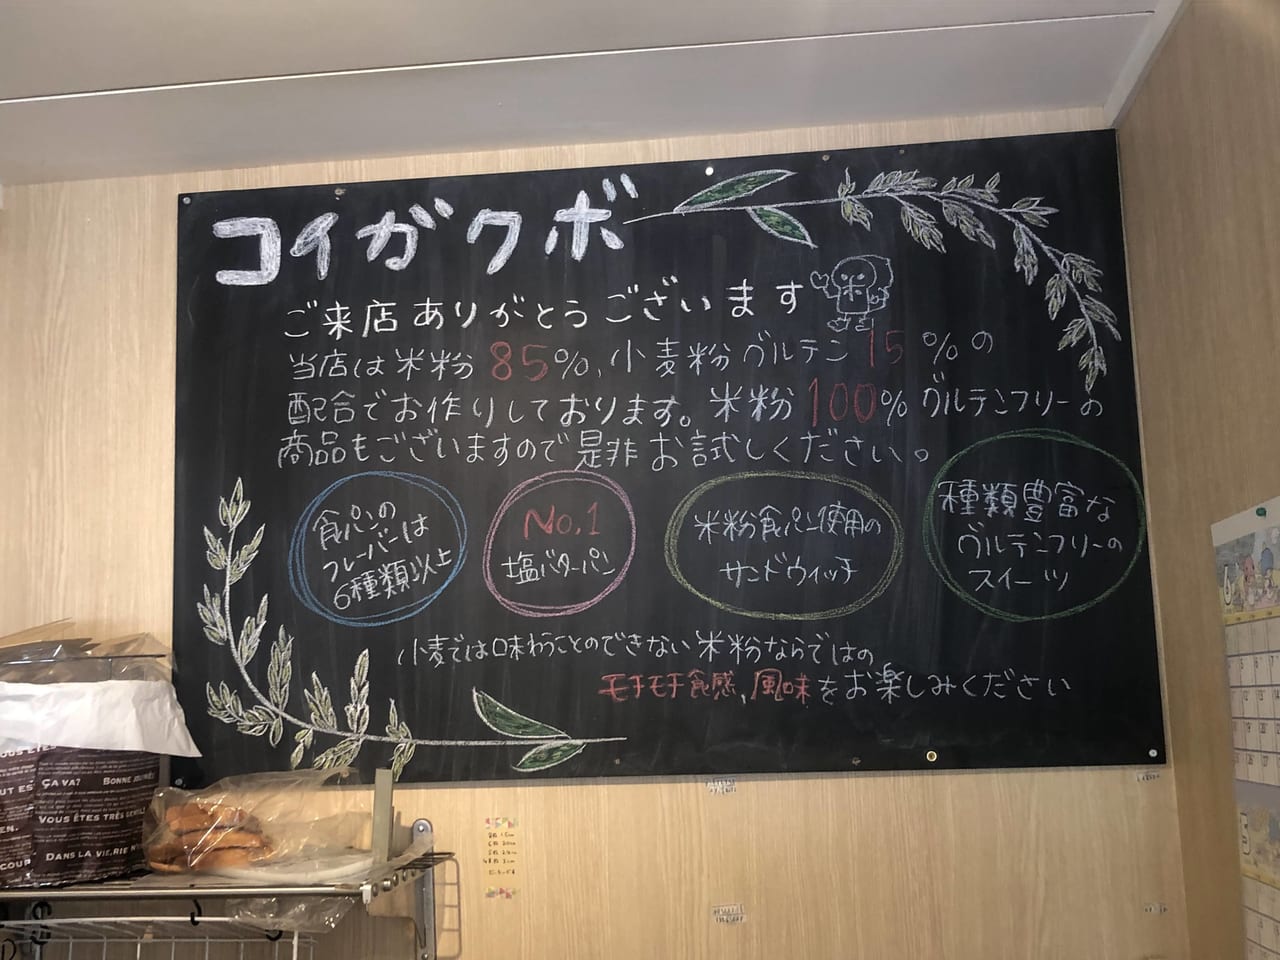 コイガクボ
ご来店ありがとうございます
米
当店は米粉85%、小麦粉グルテン15%の
配合でお作りしております。米粉100%グルテンフリーの
商品もございますので是非お試しください。
食パンの
フレーバーは
6種類以上
No.1
塩バターパン
米粉食パン使用の
サンドウィッチ
種類豊富な
グルテンフリーの
スイーツ
小麦では味わうことのできない米粉ならではの
モチモチ食感、風味をお楽しみください
ÇA VA? BONNE JOURNÉE
VOUS ÊTES TRÈS GENTIL
DANS LA VIE, RIE N